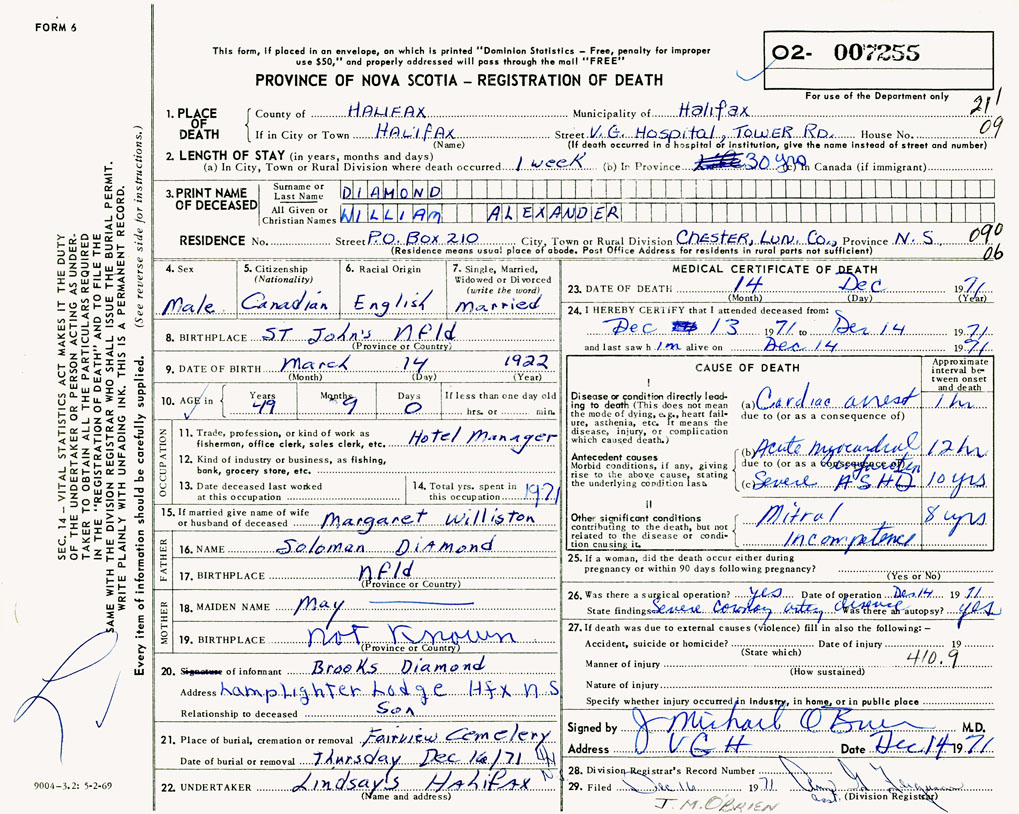 FORM 6
This form, if placed in an envelope, on which is printed "Dominion Statistics – Free, penalty for improper
use $50," and properly addressed will pass through the mail "FREE"
PROVINCE OF NOVA SCOTIA – REGISTRATION OF DEATH
02- 007255
For use of the Department only
211
09
1. PLACE OF DEATH
County of HALIFAX Municipality of Halifax
If in City or Town HALIFAX Street V.G. Hospital, TOWER RD. House No.
(Name) (If death occurred in a hospital or institution, give the name instead of street and number)
2. LENGTH OF STAY (in years, months and days)
(a) In City, Town or Rural Division where death occurred 1 week (b) In Province 30 yrs (c) In Canada (if immigrant)
3. PRINT NAME OF DECEASED
Surname or Last Name DIAMOND
All Given or Christian Names WILLIAM ALEXANDER
RESIDENCE No. Street P.O. BOX 210 City, Town or Rural Division CHESTER, LUN. CO., Province N.S 090
(Residence means usual place of abode. Post Office Address for residents in rural parts not sufficient) 06
4. Sex Male
5. Citizenship (Nationality) Canadian
6. Racial Origin English
7. Single, Married, Widowed or Divorced (write the word) married
8. BIRTHPLACE ST John's Nfld
(Province or Country)
9. DATE OF BIRTH March 14 1922
(Month) (Day) (Year)
10. AGE in Years 49 Months 9 Days 0 If less than one day old hrs. or min.
OCCUPATION
11. Trade, profession, or kind of work as fisherman, office clerk, sales clerk, etc. Hotel Manager
12. Kind of industry or business, as fishing, bank, grocery store, etc.
13. Date deceased last worked at this occupation
14. Total yrs. spent in this occupation 1971
15. If married give name of wife or husband of deceased Margaret Williston
FATHER
16. NAME Soloman Diamond
17. BIRTHPLACE Nfld
(Province or Country)
MOTHER
18. MAIDEN NAME May
19. BIRTHPLACE Not Known
(Province or Country)
20. Signature of informant Brooks Diamond
Address Lamplighter Lodge Hfx N S
Relationship to deceased Son
21. Place of burial, cremation or removal Fairview Cemetery
Date of burial or removal Thursday Dec 16/71
22. UNDERTAKER Lindsay's HALIFAX NS
(Name and address)
MEDICAL CERTIFICATE OF DEATH
23. DATE OF DEATH 14 Dec 1971
(Month) (Day) (Year)
24. I HEREBY CERTIFY that I attended deceased from:
Dec 13 1971 to Dec 14 1971
and last saw him alive on Dec 14 1971
CAUSE OF DEATH
Approximate interval between onset and death
I
Disease or condition directly leading to death (This does not mean the mode of dying, e.g., heart failure, asthenia, etc. It means the disease, injury, or complication which caused death.)
(a) Cardiac arrest 1 hr
due to (or as a consequence of)
Antecedent causes
Morbid conditions, if any, giving rise to the above cause, stating the underlying condition last.
(b) Acute myocardial infarction 12 hr
due to (or as a consequence of)
(c) Severe ASHD 10 yrs
II
Other significant conditions contributing to the death, but not related to the disease or condition causing it.
Mitral 8 yrs
Incompetence
25. If a woman, did the death occur either during pregnancy or within 90 days following pregnancy?
(Yes or No)
26. Was there a surgical operation? yes Date of operation Dec 14 1971
State findings Severe coronary artery disease Was there an autopsy? yes
27. If death was due to external causes (violence) fill in also the following: –
Accident, suicide or homicide? Date of injury 19
(State which)
Manner of injury 410.9
(How sustained)
Nature of injury
Specify whether injury occurred in Industry, in home, or in public place
Signed by J Michael O'Brien M.D.
Address V G H Date Dec 14 1971
28. Division Registrar's Record Number
29. Filed Dec 16 1971
(Division Registrar)
J.M. O'BRIEN
SEC. 14 – VITAL STATISTICS ACT MAKES IT THE DUTY
OF THE UNDERTAKER OR PERSON ACTING AS UNDER-
TAKER TO OBTAIN ALL THE PARTICULARS REQUIRED
IN THE "REGISTRATION OF DEATH" AND TO FILE THE
SAME WITH THE DIVISION REGISTRAR WHO SHALL ISSUE THE BURIAL PERMIT.
WRITE PLAINLY WITH UNFADING INK. THIS IS A PERMANENT RECORD.
Every item of information should be carefully supplied. (See reverse side for instructions.)
9004-3.2: 5-2-69